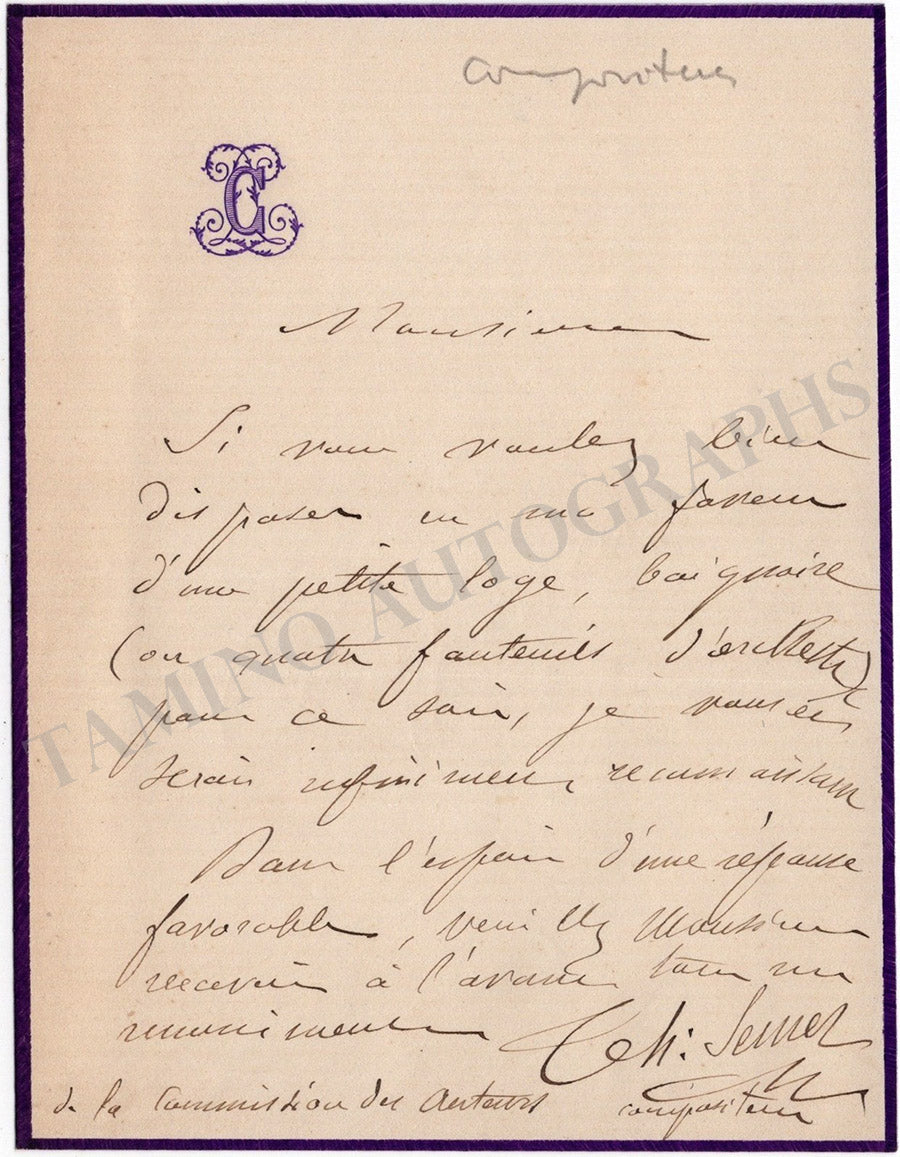 compositeur
C
Monsieur
Si vous voulez bien
disposer en ma faveur
d'une petite loge, baignoire
(ou quatre fauteuils d'orchestre)
pour ce soir, je vous en
serais infiniment reconnaissant
Dans l'espoir d'une réponse
favorable, veuillez Monsieur
recevoir à l'avance tous mes
remerciments
Th: Semet
de la Commission des Auteurs compositeur
TAMINO AUTOGRAPHS